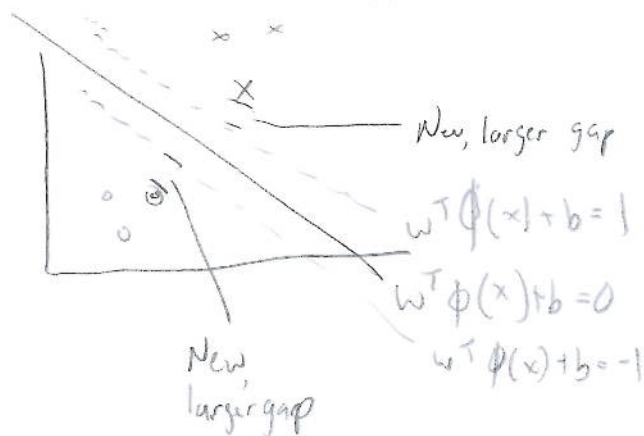 New, larger gap
w^T ϕ(x) + b = 1
w^T ϕ(x) + b = 0
w^T ϕ(x) + b = -1
New,
larger gap